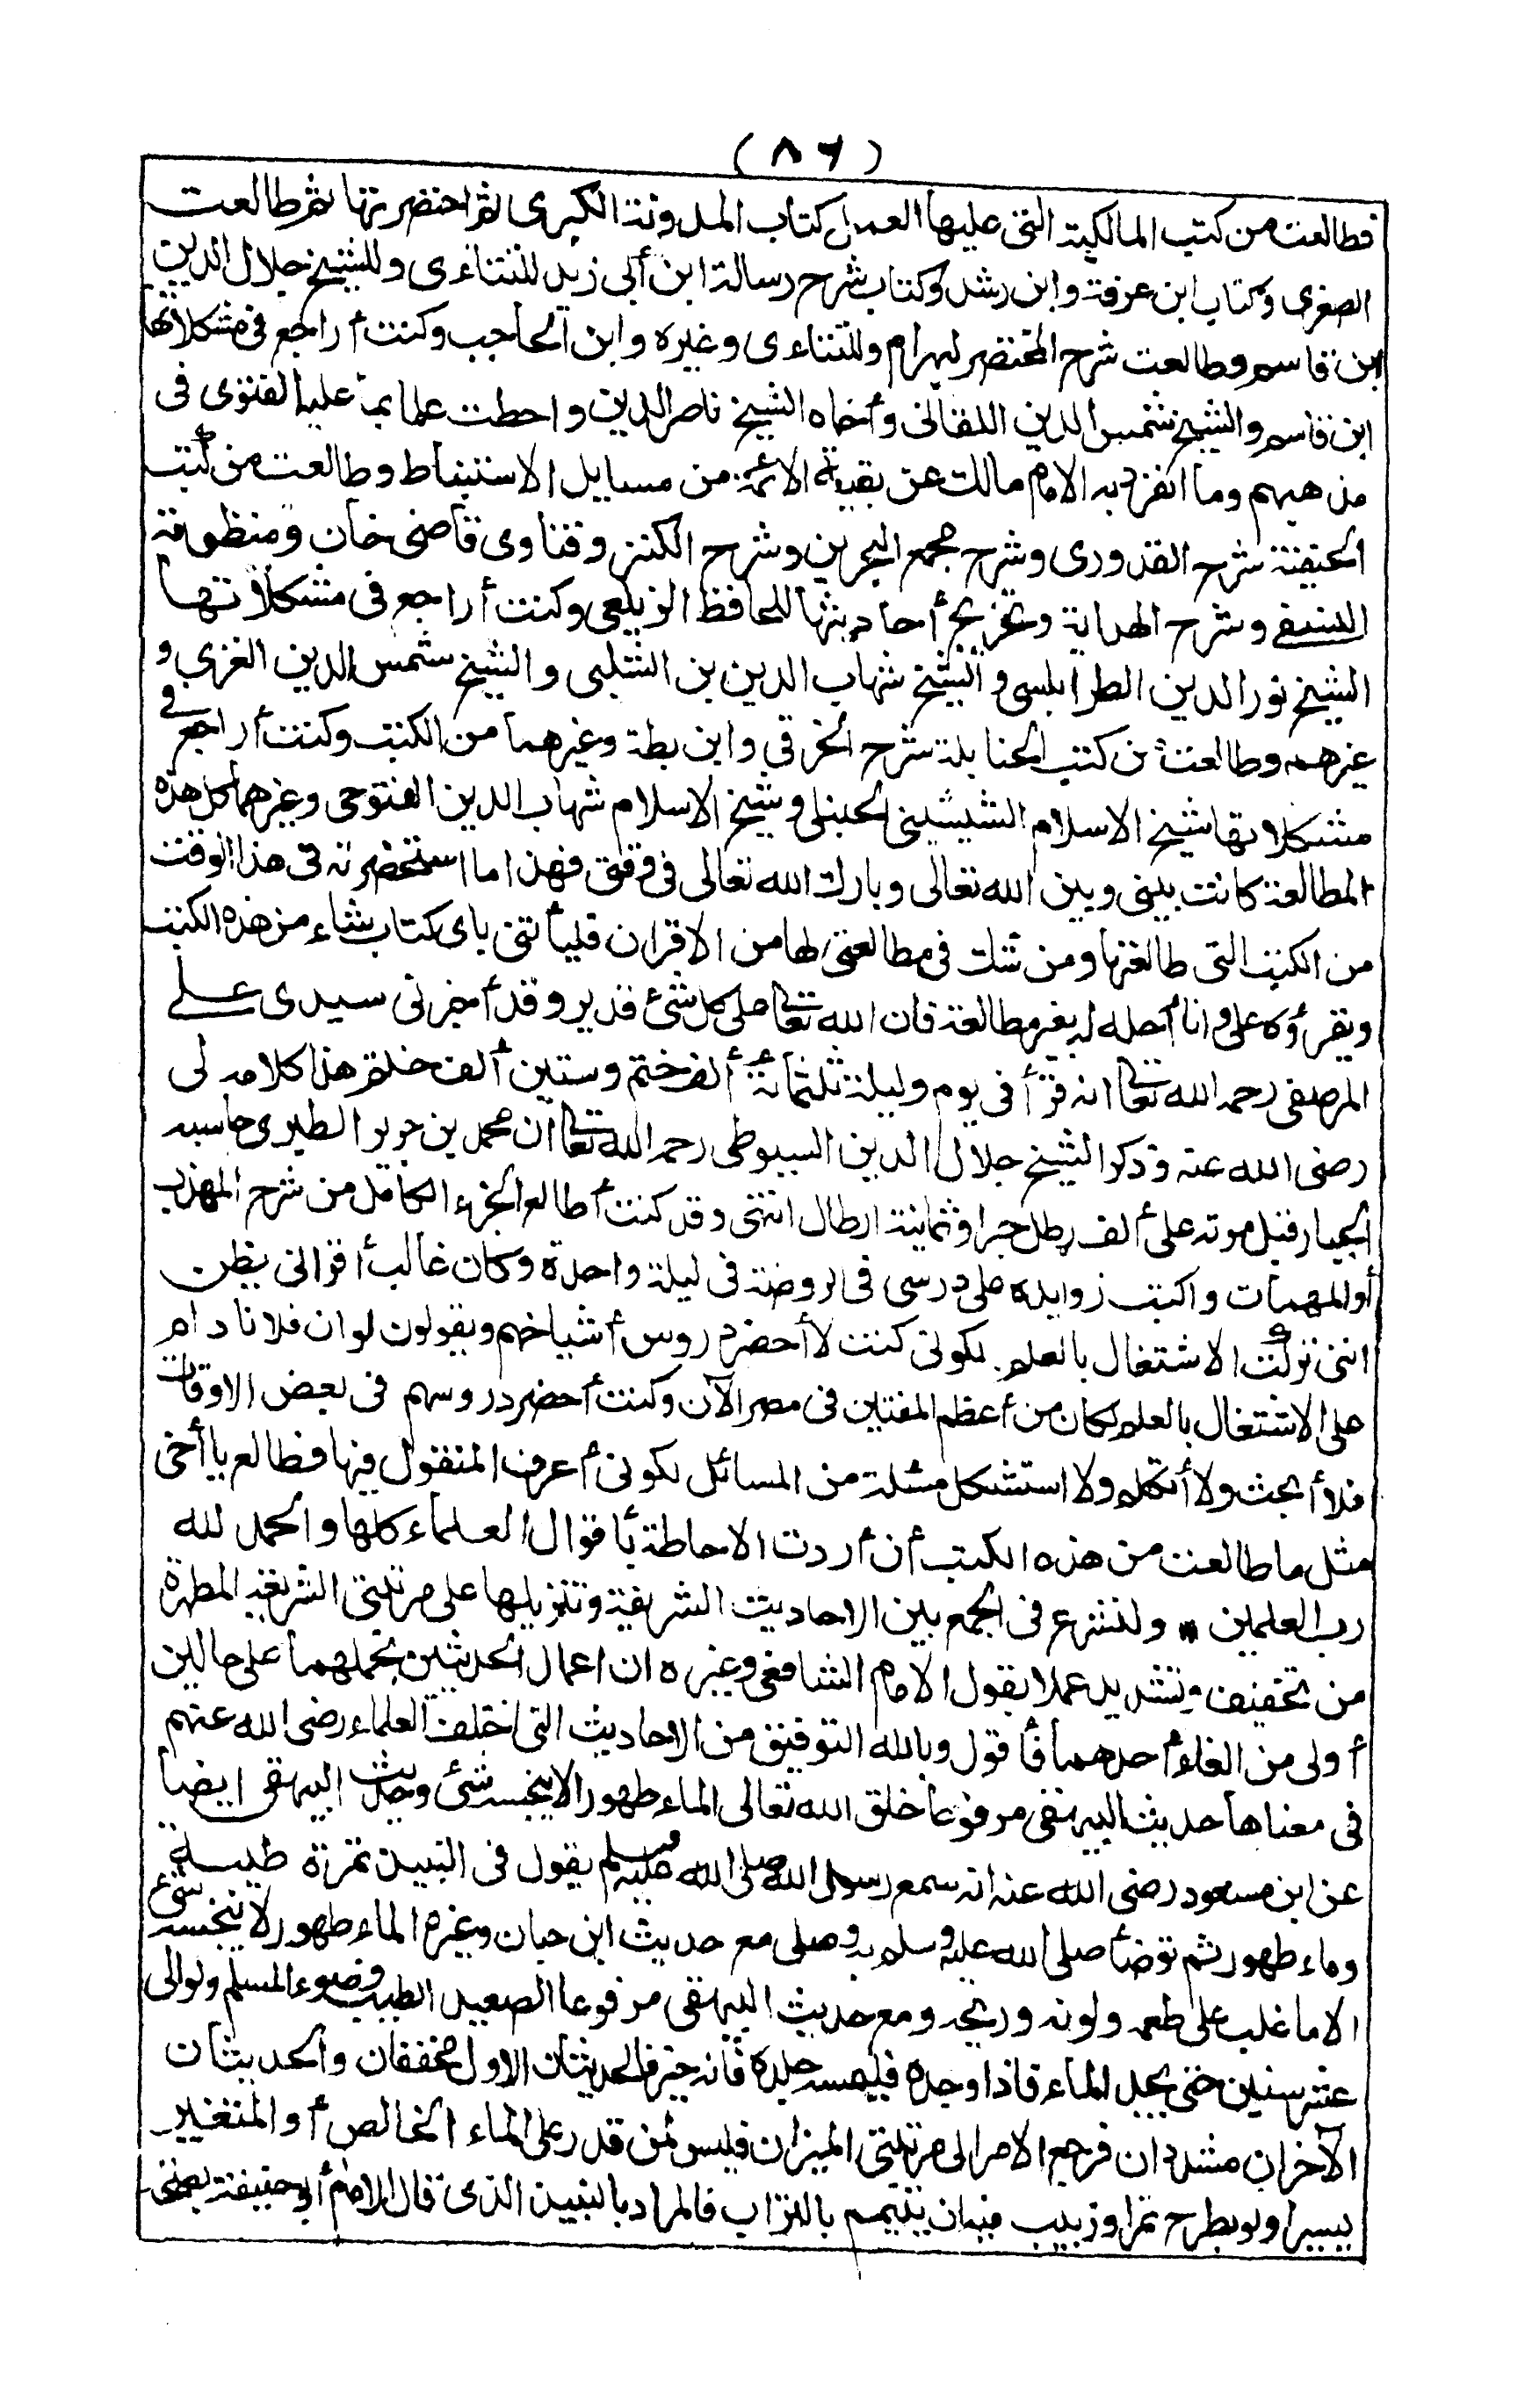 (٨٦)
فطالعت من كتب المالكية التى عليها العمل كتاب المدونة الكبرى ثم اختصرتها ثم طالعت
الصغرى وكتاب ابن عرفة وابن رشد وكتاب شرح رسالة ابن أبى زيد للتتاءى وللشيخ جلال الدين
ابن قاسم وطالعت شرح المختصر لبهرام وللتتاءى وغيره وابن الحاجب وكنت أراجع فى مشكلاتها
ابن قاسم والشيخ شمس الدين اللقانى وأخاه الشيخ ناصر الدين واحطت علما بما عليه الفتوى فى
مذهبهم وما انفرد به الامام مالك عن بقية الائمة من مسايل الاستنباط وطالعت من كتب
الحنفية شرح القدورى وشرح مجمع البحرين وشرح الكنز وفتاوى قاضى خان ومنظومة
النسفى وشرح الهداية وتخريج أحاديثها للحافظ الزيلعى وكنت أراجع فى مشكلاتها
الشيخ نور الدين الطرابلسى والشيخ شهاب الدين بن الشلبى والشيخ شمس الدين الغزى و
غيرهم وطالعت من كتب الحنابلة شرح الخرقى وابن بطة وغيرهما من الكتب وكنت أراجع فى
مشكلاتها شيخ الاسلام الشيشينى الحنبلى وشيخ الاسلام شهاب الدين الفتوحى وغيرهما كل هذه
المطالعة كانت بينى وبين الله تعالى وبارك الله تعالى فى وقتى فهذا ما استحضرته فى هذا الوقت
من الكتب التى طالعتها ومن شك فى مطالعتى لها من الاقران فليأتنى باى كتاب شاء من هذه الكتب
ويقرؤه على وانا أحله له بغير مطالعة فان الله تعا على كل شئ قدير وقد أخبرنى سيدى على
المرصفى رحمه الله تعا انه قرأ فى يوم وليلة ثلثمائة ألف ختم وستين ألف ختم هذا كلامه لى
رضى الله عنه وذكر الشيخ جلال الدين السيوطى رحمه الله تعا ان محمد بن جرير الطبرى حاسبه
الحبار قبل موته على ألف رطل حبرا وثمانية ارطال انتهى وقد كنت أطالع الجزء الكامل من شرح المهذب
أو المهمات واكتب زوايده على درسى فى الروضة فى ليلة واحدة وكان غالب أقرانى يظن
اننى تركت الاشتغال بالعلم لكونى كنت لا أحضر دروس أشياخهم ويقولون لو ان فلانا دام
على الاشتغال بالعلم لكان من أعظم المفتين فى مصر الآن وكنت أحضر دروسهم فى بعض الاوقات
فلا أبحث ولا أتكلم ولا استشكل مسئلة من المسائل لكونى أعرف المنقول فيها فطالع ياأخى
مثل ما طالعت من هذه الكتب أن أردت الاحاطة بأقوال العلماء كلها والحمد لله
رب العلمين * ولنشرع فى الجمع بين الاحاديث الشريفة وتنزيلها على مرتبتى الشريعة المطهرة
من تخفيف وتشديد عملا بقول الامام الشافعى وغيره ان اعمال الحديثين بحملهما على حالين
أولى من الغاء أحدهما فأقول وبالله التوفيق من الاحاديث التى اختلف العلماء رضى الله عنهم
فى معناها حديث البيهقى مرفوعا خلق الله تعالى الماء طهورا لا ينجسه شئ وحديث البيهقى ايضا
عن ابن مسعود رضى الله عنه انه سمع رسول الله صلى الله عليه وسلم يقول فى النبيذ تمرة طيبة
وماء طهور ثم توضأ صلى الله عليه وسلم به وصلى مع حديث ابن حبان وغيره الماء طهور لا ينجسه شئ
الا ما غلب على طعمه ولونه وريحه ومع حديث البيهقى مرفوعا الصعيد الطيب وضوء المسلم ولو الى
عشر سنين حتى يجد الماء فاذا وجده فليمسه جلده فانه خير فالحديثان الاول مخففان والحديثان
الآخران مشددان فرجع الامر الى مرتبتى الميزان فليس لمن قدر على الماء الخالص أو المتغير
يسيرا ولو بطرح تمر او زبيب فيه ان يتيمم بالتراب فالمراد بالنبيذ الذى قال الامام أبو حنيفة بصحة